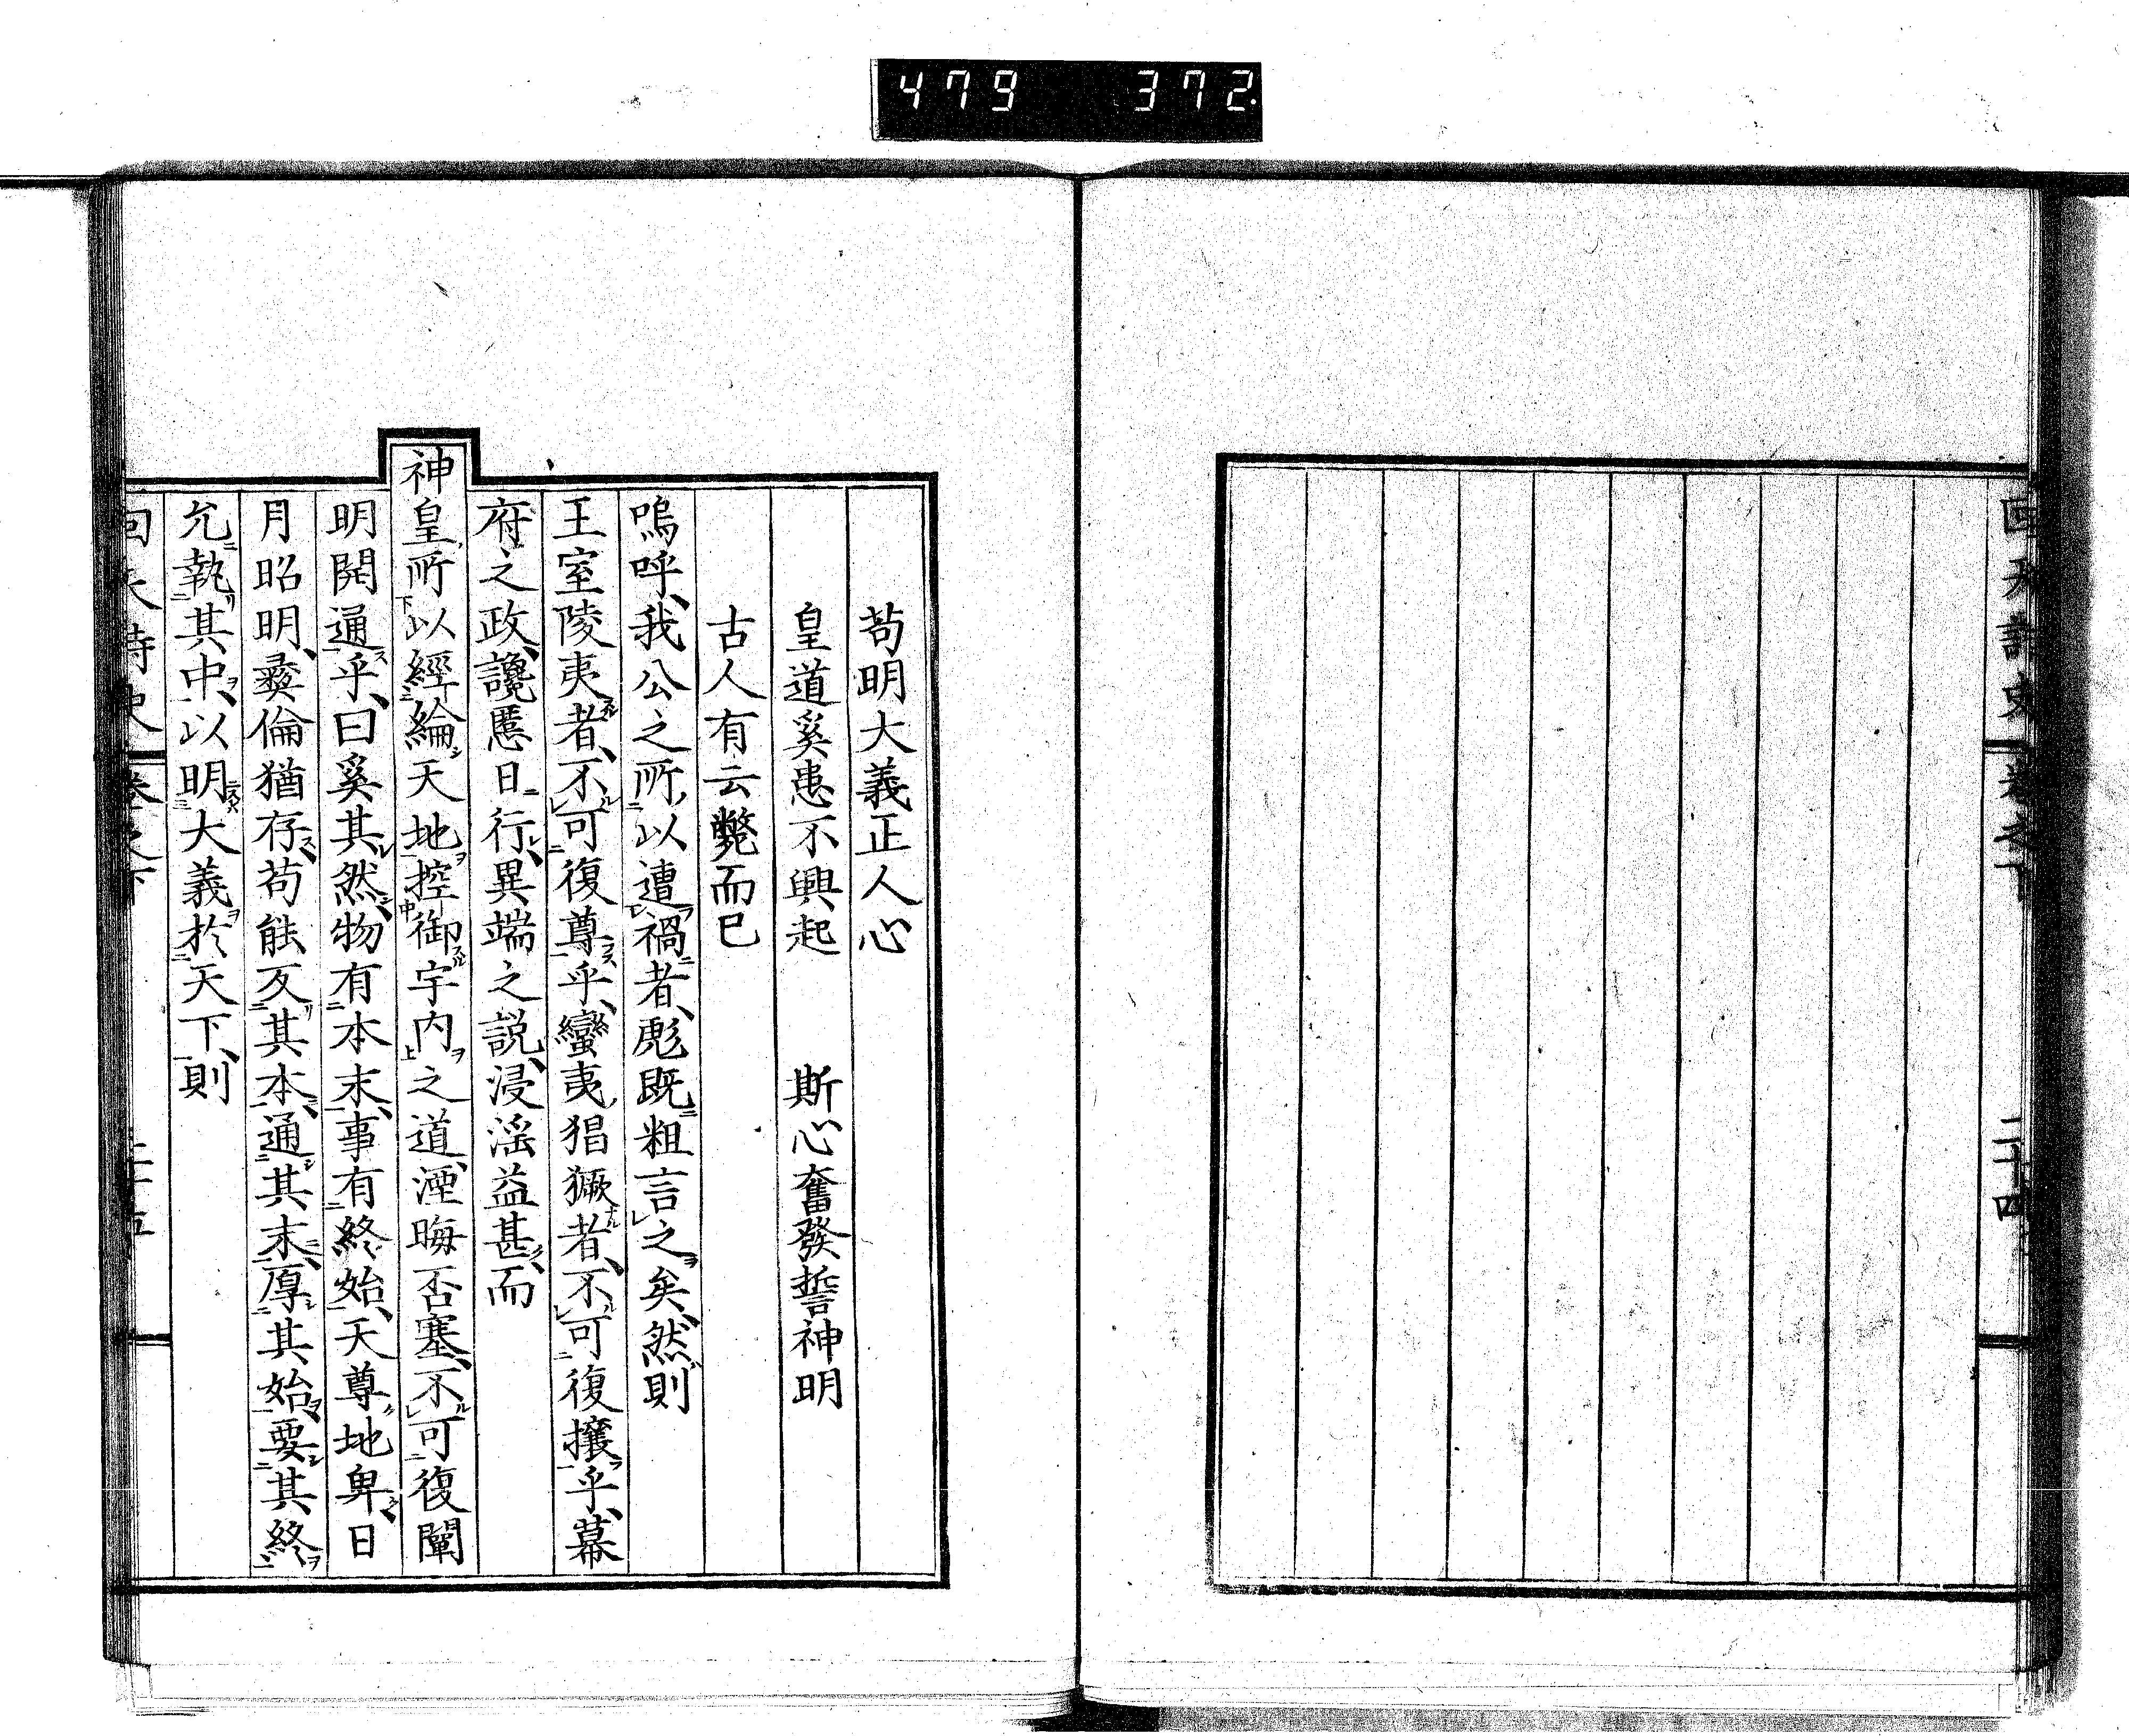 479 372
回天詩史 卷之下 二十四
苟明大義正人心
皇道奚患不興起 斯心奮發誓神明
古人有云斃而已
嗚呼、我公之所以遭禍者、彪既粗言之矣、然則
王室陵夷者、不可復尊乎、蠻夷猖獗者、不可復攘乎、幕
府之政、讒慝日行、異端之説、浸淫益甚、而
神皇所以經綸天地控御宇内之道、湮晦否塞、不可復闡
明開通乎、曰奚其然、物有本末、事有終始、天尊地卑、日
月昭明、彜倫猶存、苟能反其本、通其末、厚其始、要其終
允執其中、以明大義於天下、則
回天詩史 卷之下 二十五